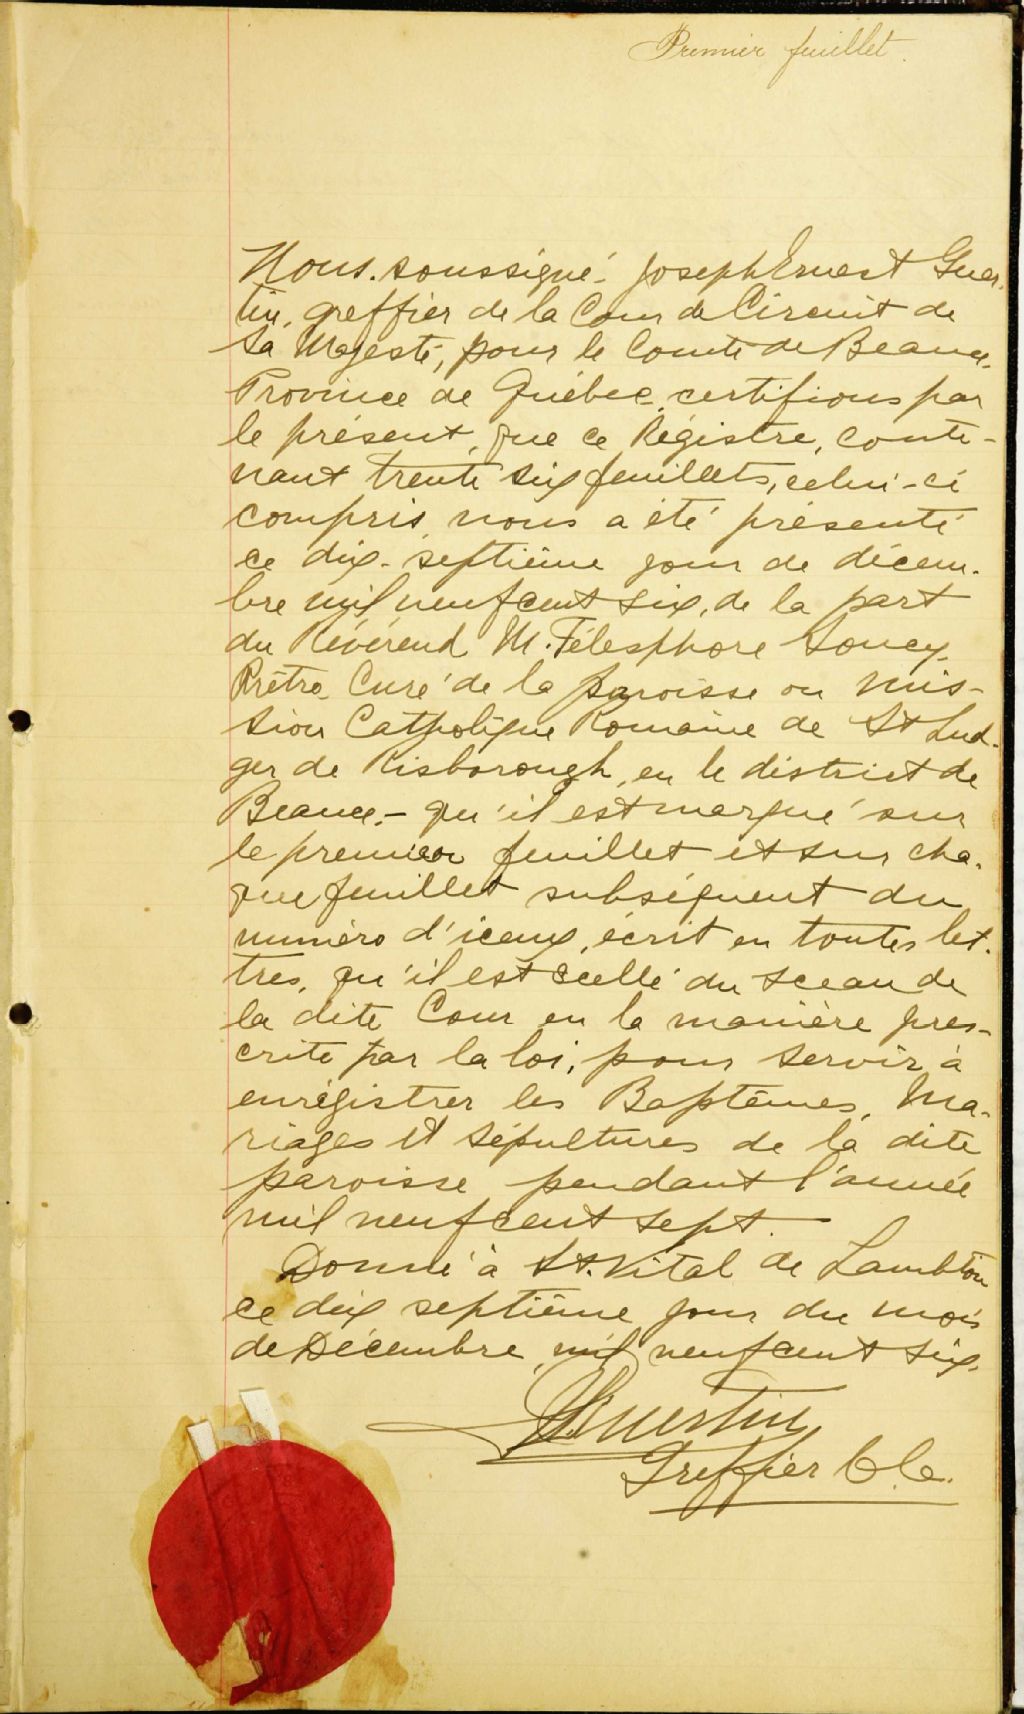 Premier feuillet.
Nous. soussigné. Joseph Ernest Guer-
tin, greffier de la Cour de Circuit de
Sa Majesté, pour le Comté de Beauce,
Province de Québec, certifions par
le présent, que ce Régistre, conte-
nant trente six feuillets, celui-ci
compris, nous a été présenté
ce dix-septième jour de décem-
bre mil neuf cent six, de la part
du Révérend M. Télesphore Soucy,
Prêtre Curé de la paroisse ou mis-
sion Catholique Romaine de St Lud-
ger de Risborough, en le district de
Beauce,- qu'il est marqué sur
le premier feuillet et sur cha-
que feuillet subséquent du
numéro d'iceux, écrit en toutes let-
tres, qu'il est scellé du sceau de
la dite Cour en la manière pres-
crite par la loi, pour servir à
enrégistrer les Baptêmes, Ma-
riages et sépultures de la dite
paroisse pendant l'année
mil neuf cent sept.
Donné à St. Vital de Lambton
ce dix septième jour du mois
de Décembre, mil neuf cent six.
Guertin
Greffier C.C.